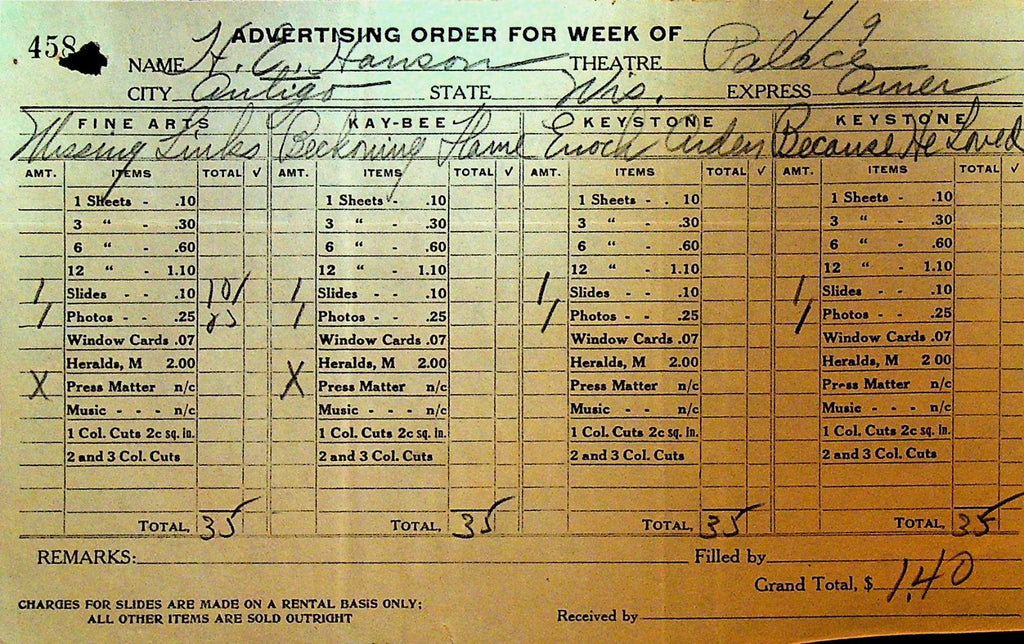 458
ADVERTISING ORDER FOR WEEK OF 4/9
NAME H. C. Hanson THEATRE Palace
CITY Antigo STATE Wis. EXPRESS Amer
FINE ARTS KAY-BEE KEYSTONE KEYSTONE
Missing Links Beckoning Flame Enoch Arden Because He Loved
AMT. ITEMS TOTAL √ AMT. ITEMS TOTAL √ AMT. ITEMS TOTAL √ AMT. ITEMS TOTAL √
1 Sheets - .10 1 Sheets - .10 1 Sheets - . 10 1 Sheets - .10
3 " - .30 3 " - .30 3 " - .30 3 " - .30
6 " - .60 6 " - .60 6 " - .60 6 " - .60
12 " - 1.10 12 " - 1.10 12 " - 1.10 12 " - 1.10
1 Slides - - .10 10/ 1 Slides - - .10 1 Slides - - .10 1 Slides - - .10
1 Photos - - .25 25 1 Photos - - .25 1 Photos - - .25 1 Photos - - .25
Window Cards .07 Window Cards .07 Window Cards .07 Window Cards .07
Heralds, M 2.00 Heralds, M 2.00 Heralds, M 2.00 Heralds, M 2 00
X Press Matter n/c X Press Matter n/c Press Matter n/c Press Matter n/c
Music - - - n/c Music - - - n/c Music - - n/c Music - - - n/c
1 Col. Cuts 2c sq. in. 1 Col. Cuts 2c sq. in. 1 Col. Cuts 2c sq. in. 1 Col. Cuts 2c sq. in.
2 and 3 Col. Cuts 2 and 3 Col. Cuts 2 and 3 Col. Cuts 2 and 3 Col. Cuts
TOTAL, 35 TOTAL, 35 TOTAL, 35 TOTAL, 35
REMARKS: Filled by
Grand Total, $ 1.40
CHARGES FOR SLIDES ARE MADE ON A RENTAL BASIS ONLY;
ALL OTHER ITEMS ARE SOLD OUTRIGHT
Received by